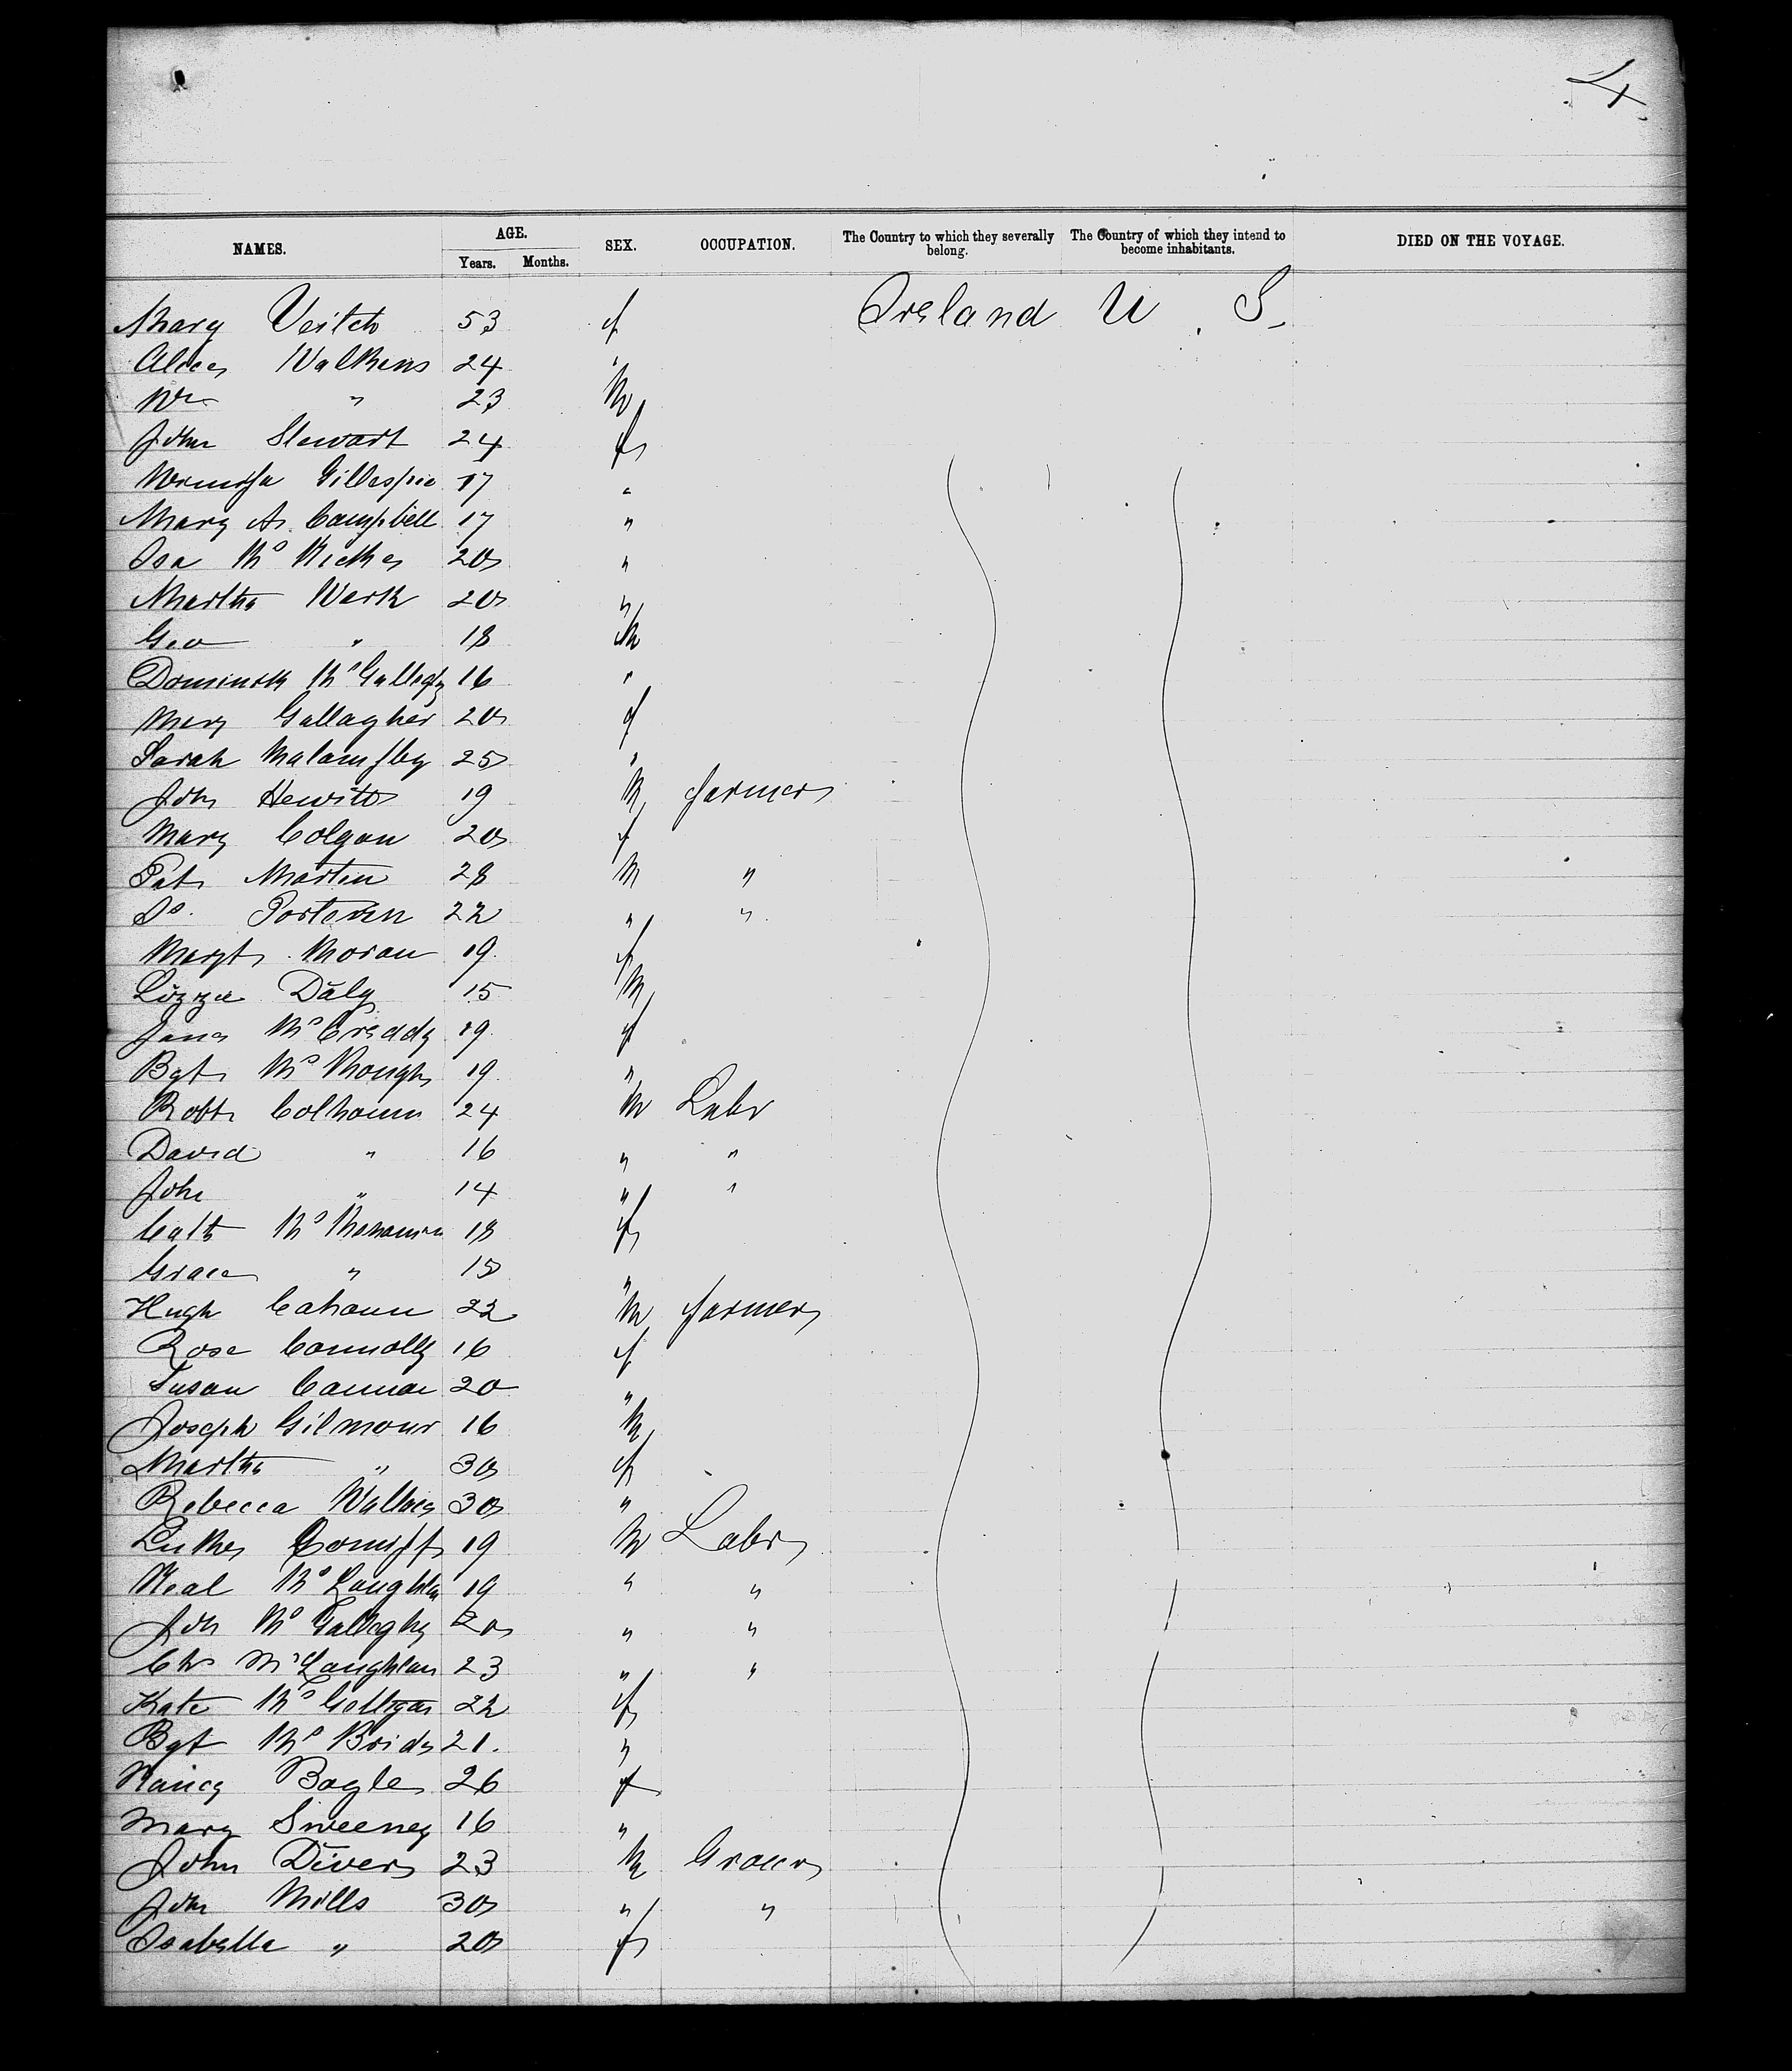 4
NAMES. AGE. Years. Months. SEX. OCCUPATION. The Country to which they severally belong. The Country of which they intend to become inhabitants. DIED ON THE VOYAGE.
Mary Veitch 53 f Ireland U. S.
Alice 24 "
Wm " 23 M
John Stewart 24 f
Gillespie 17 "
Mary A. Campbell 17 "
Isa 20 "
Martha Werk 20 "
Geo " 18 M
Dominick 16 "
Mary Gallagher 20 f
Sarah 25 "
John Hewitt 19 M farmer
Mary Colgan 20 f
Pat Martin 28 M "
Do. 22 " "
Margt Moran 19 f
Lizzie Daly 15 M
Jane McCreddy 19 f
Bgt 19 "
Robt Colhoun 24 M Labr
David " 16 " "
John " 14 " "
Cath 18 f
Grace " 15 "
Hugh Cahoun 22 M farmer
Rose Connolly 16 f
Susan 20 "
Joseph Gilmour 16 M
Martha " 30 f
Rebecca Wallace 30 "
19 M Labr
Neal McLaughlin 19 " "
John 20 " "
Chs McLaughlan 23 " "
Kate 22 f
Bgt McBride 21. "
Nancy Bogle 26 f
Mary Sweeney 16 "
John Diver 23 M Grocer
John Mills 30 " "
Isabella " 20 f